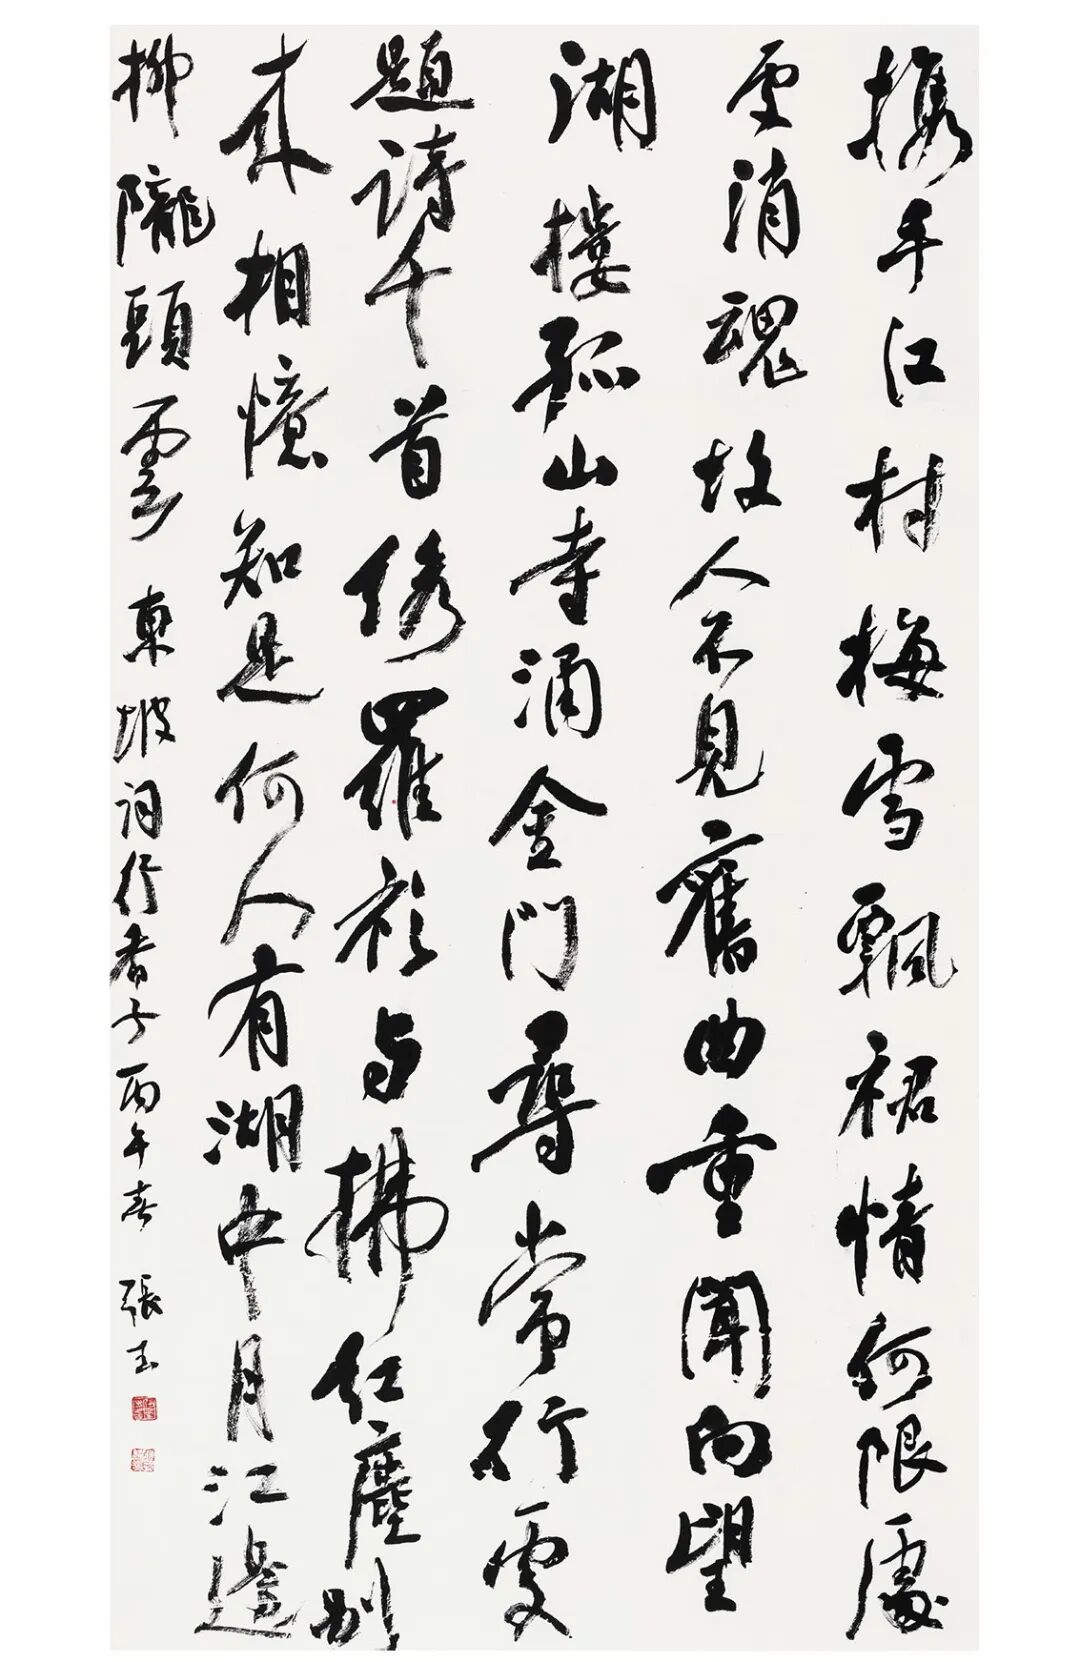 攜手江村梅雪飄裙情何限處
處消魂故人不見舊曲重聞向望
湖樓孤山寺涌金門尋常行處
題詩千首繡羅衫与拂紅塵別
来相憶知是何人有湖中月江邊
柳隴頭雲 東坡詞行香子丙午春 張